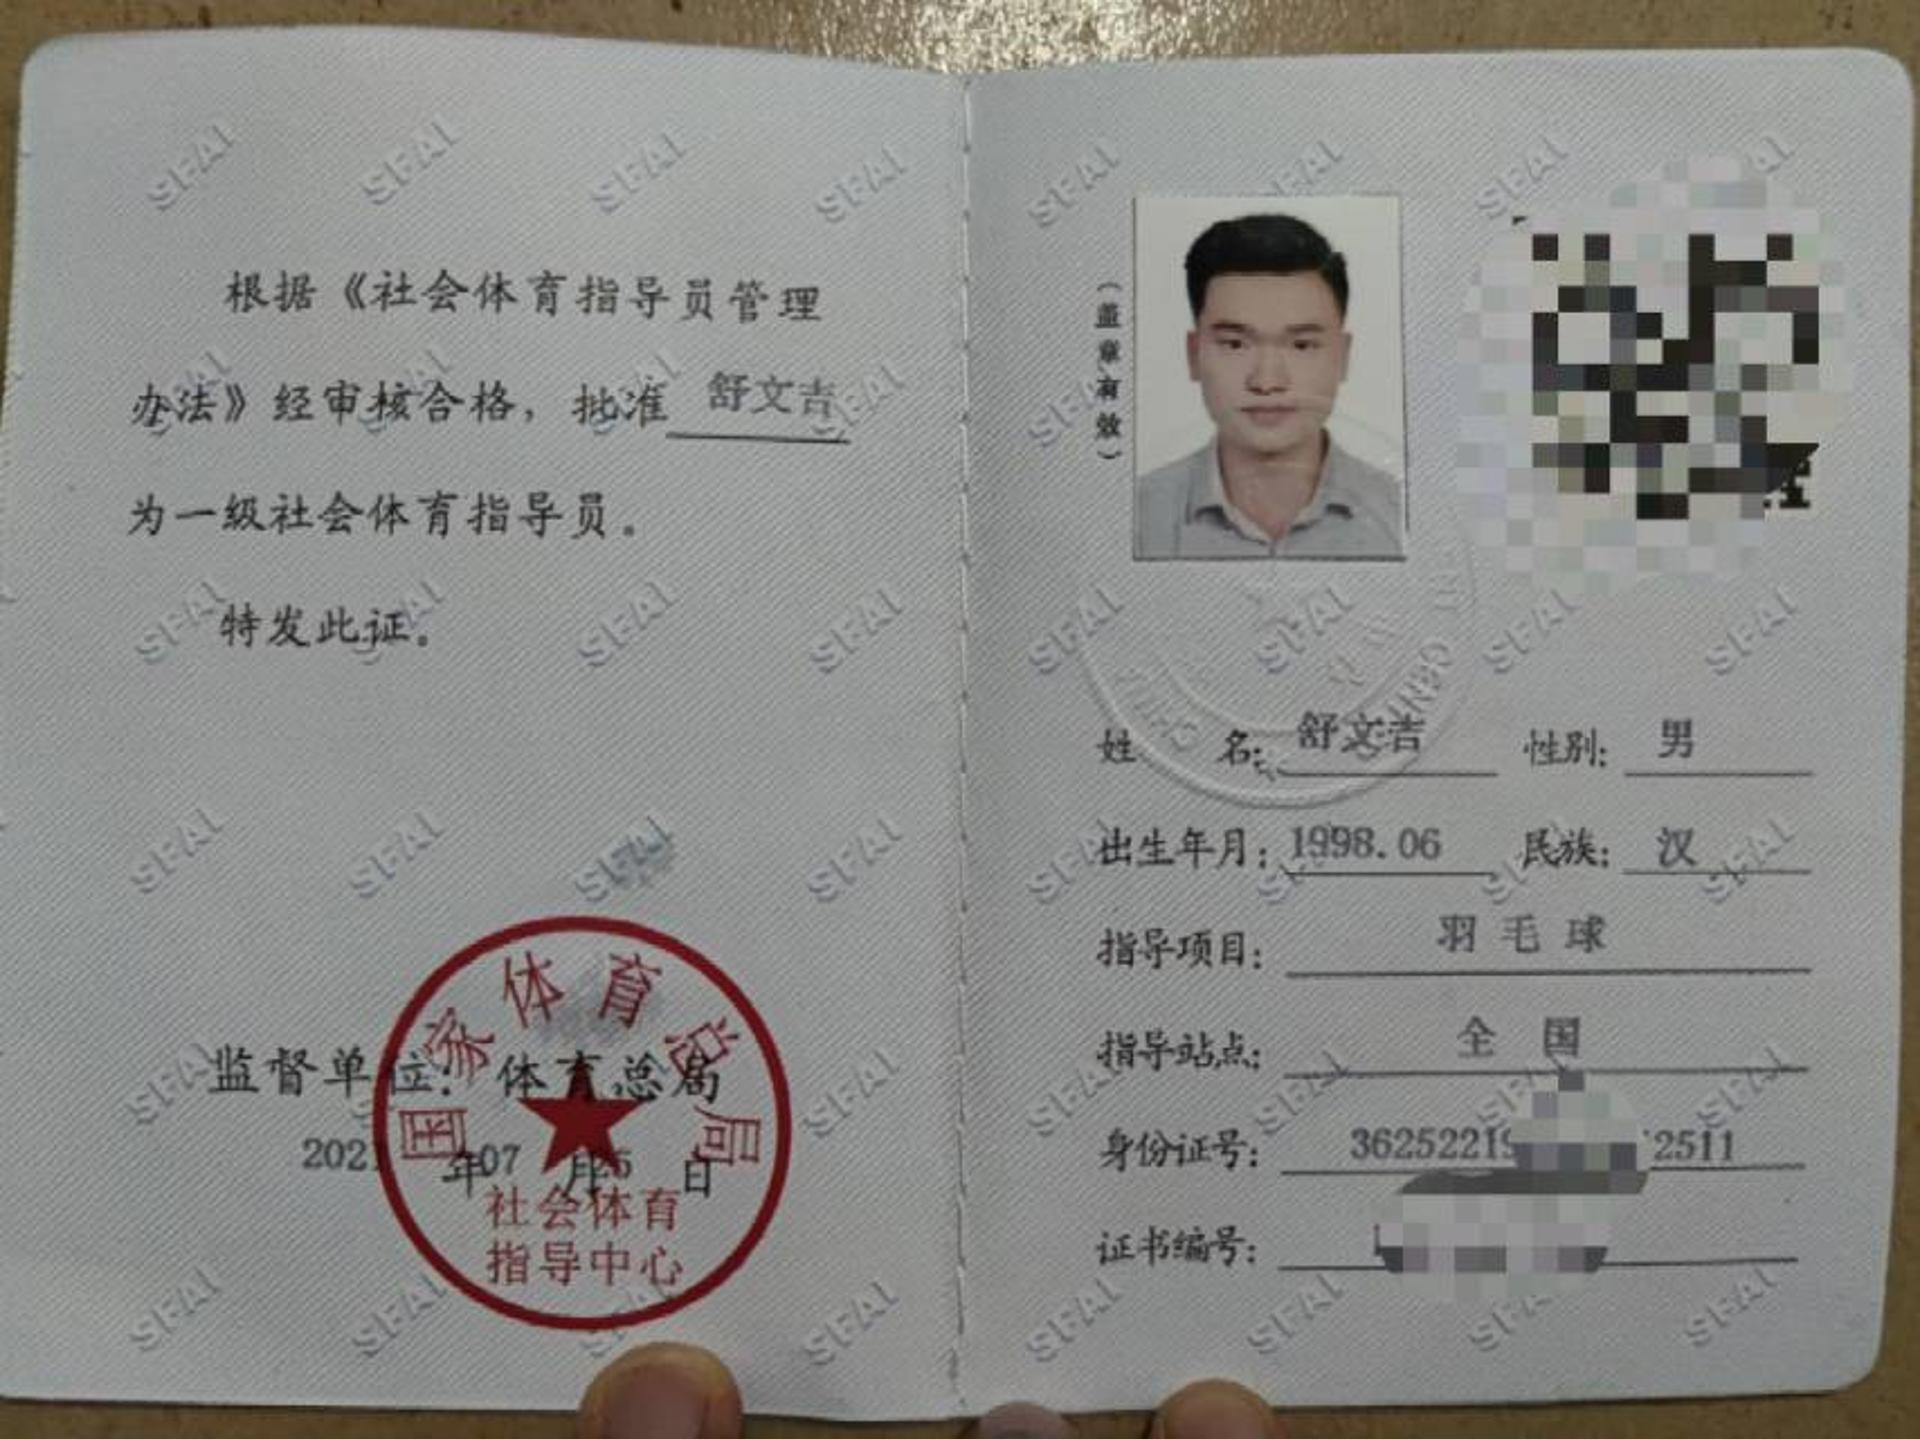 根据《社会体育指导员管理
办法》经审核合格，批准 舒文吉
为一级社会体育指导员。
特发此证。
监督单位：体育总局
2021年07月 日
国家体育总局
社会体育
指导中心
（盖章有效）
姓 名：舒文吉 性别：男
出生年月：1998.06 民族：汉
指导项目：羽毛球
指导站点：全国
身份证号：36252219 2511
证书编号：
SFAI